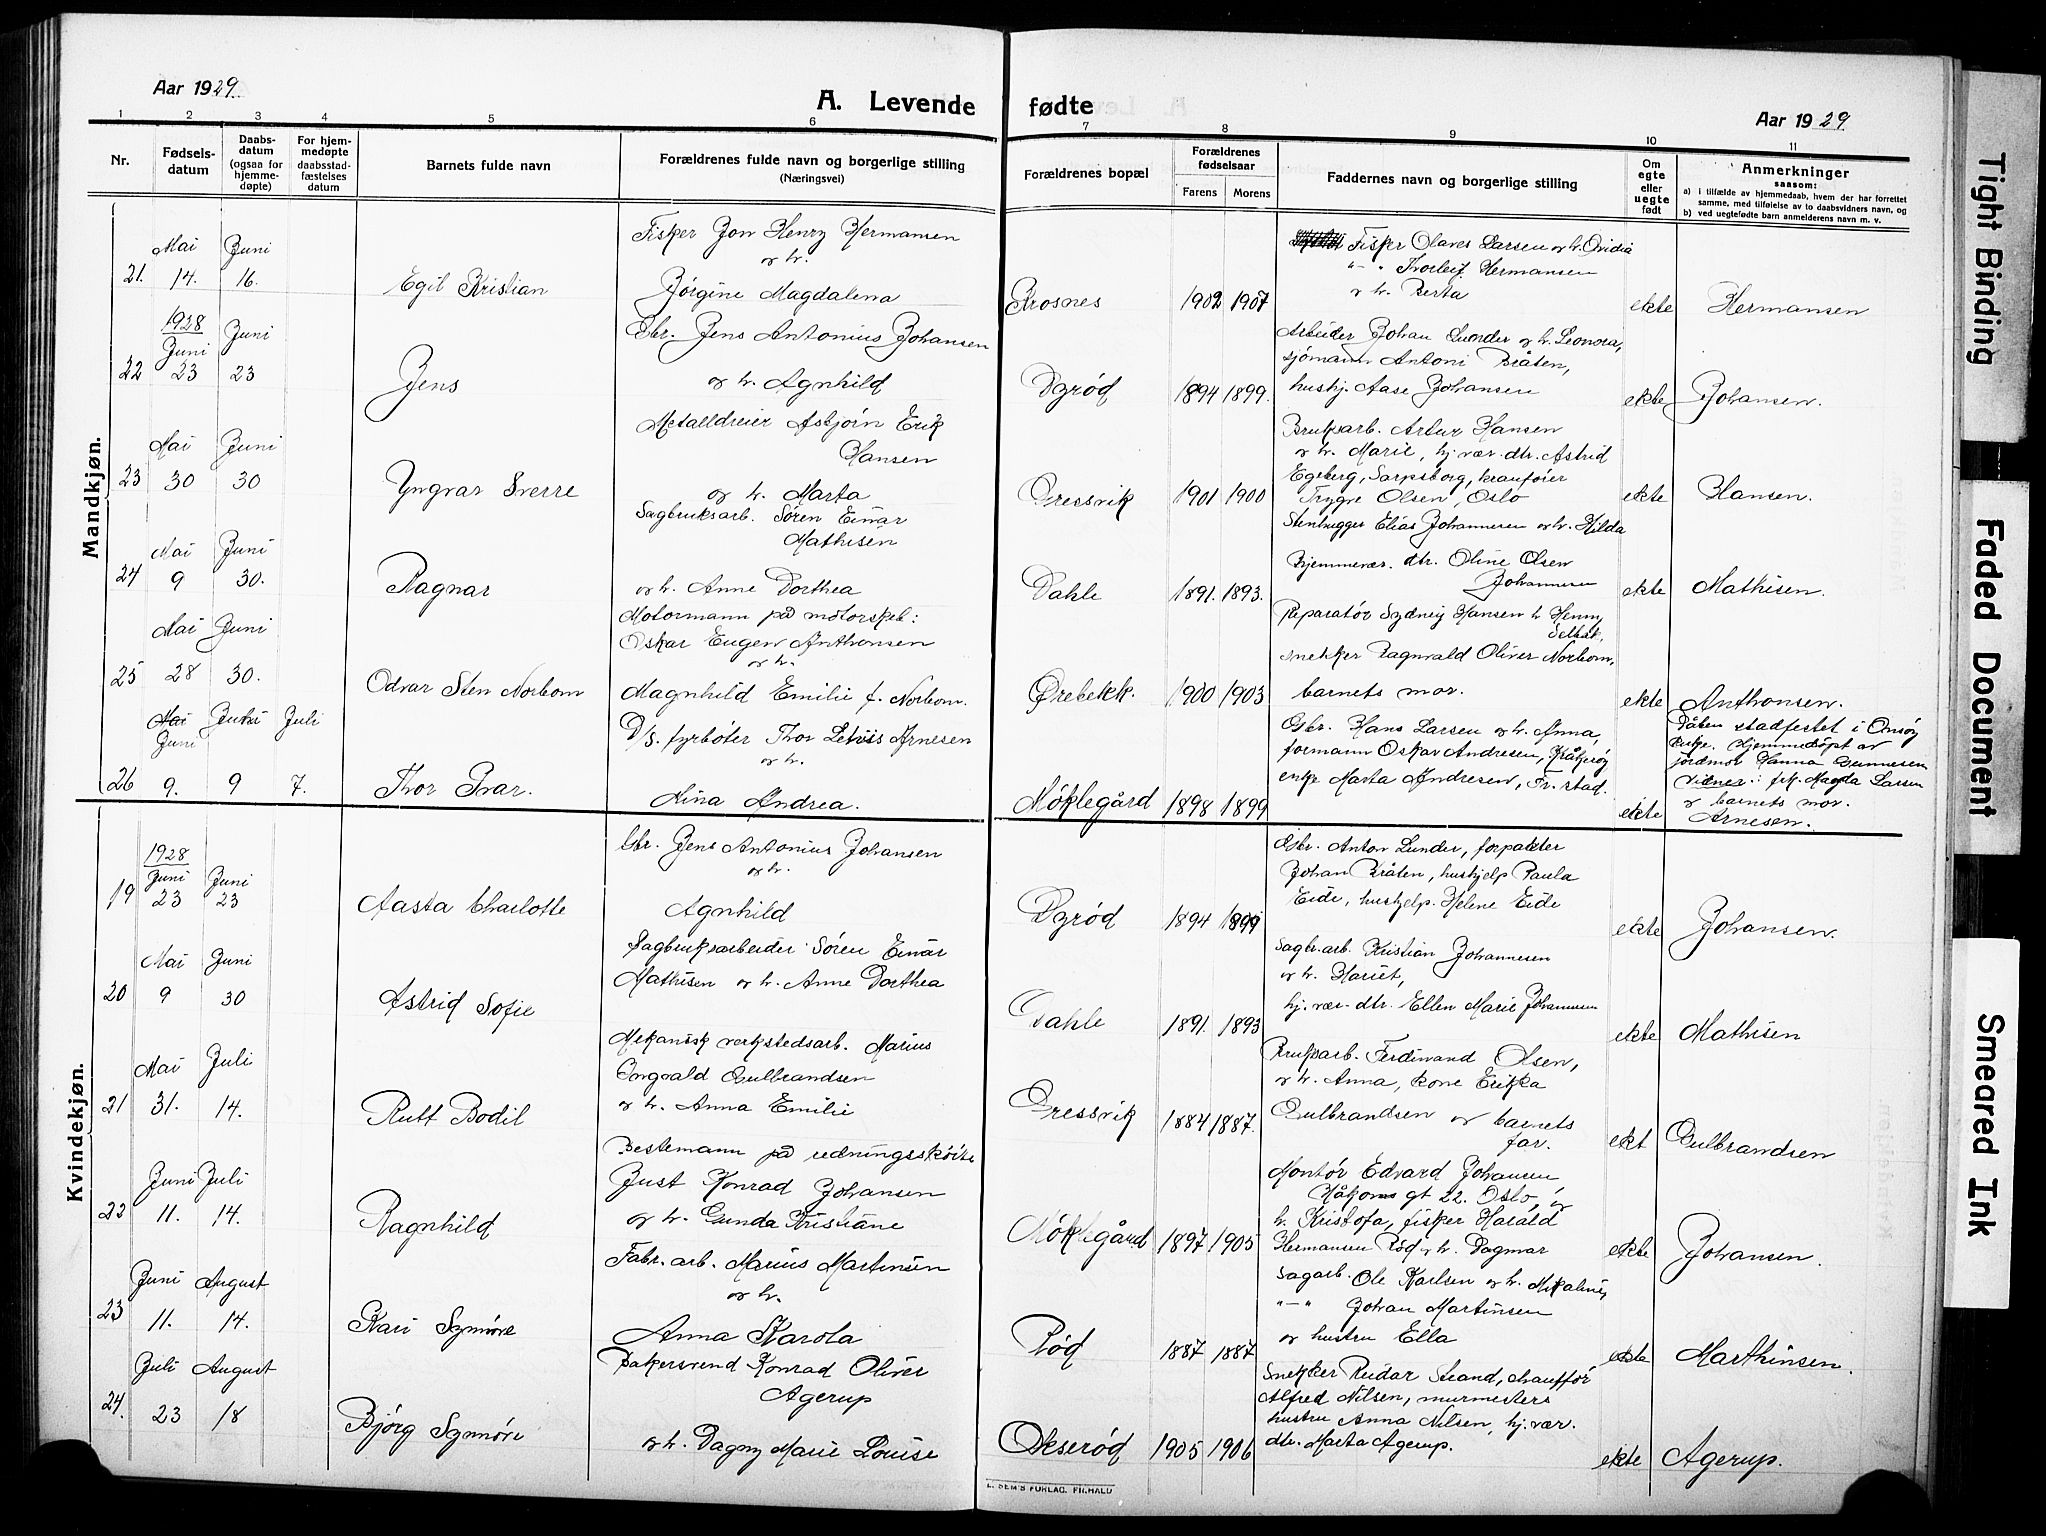 Aar 1929.
A. Levende fødte
Aar 1929
1 2 3 4 5 6 7 8 9 10 11
Nr.
Fødselsdatum
Daabsdatum (ogsaa for hjemmedøpte)
For hjemmedøpte daabsstadfæstelses datum
Barnets fulde navn
Forældrenes fulde navn og borgerlige stilling (Næringsvei)
Forældrenes bopæl
Forældrenes fødselsaar
Farens Morens
Faddernes navn og borgerlige stilling
Om egte eller uegte født
Anmerkninger
saasom:
a) i tilfælde av hjemmedaab, hvem der har forrettet samme, med tilføielse av to daabsvidners navn, og
b) ved uegtefødte barn anmelderens navn m. v.
Mandkjøn.
21. Mai 14. Juni 16.
Egil Kristian
Fisker Jon Henry Hermansen
og h.
Jørgine Magdalena
1902 1907
Fisker Olaves Larsen og h. Ovidia
"-" Thorleif Hermansen
og h. Berta
ekte
Hermansen
22 1928 Juni 23 Juni 23
Jens
Gbr. Jens Antonius Johansen
og h. Agnhild
Dyrød
1894 1899.
Arbeider Johan Lunder og h. Leonora,
sjømann Antoni Bråten,
hushj. Aase Johansen
ekte
Johansen.
23 Mai 30 Juni 30
Yngvar Sverre
Metalldreier Asbjørn Erik
Hansen
og h. Marta
Gressvik
1901 1900
Bruksarb. Artur Hansen
og h. Marie, hj.vær. dtr. Astrid
Egeberg, Sarpsborg, kranfører
Trygve Olsen, Oslo
ekte
Hansen.
24 Mai 9 Juni 30.
Ragnar
Sagbruksarb. Søren Einar
Mathisen
og h. Anne Dorthea
Dahle
1891. 1893.
Stenhugger Elias Johannesen og h. Hilda
Hjemmevær. dtr. Oline Olsen
Johannesen
ekte
Mathisen.
25 Mai 28 Juni 30.
Odvar Sten Norbom
Motormann på motorskøb:
Oskar Eugen Anthonsen
og h.
Magnhild Emilie f. Norbom.
Ørebekk.
1900 1903
Reparatør Sydney Hansen h Henny
Selbak,
snekker Ragnvald Oliver Norbom,
barnets mor.
ekte
Anthonsen.
26 Mai Juni 9. Juni 9 Juli 7.
Thor Ivar.
D/s. fyrbøter Thor Arnesen
og h.
Nina Andrea.
Møklegård
1898 1899
Gbr. Hans Larsen og h. Anna,
formann Oskar Andresen, Kråkerøy
enke Marta Andresen, Fr.stad.
ekte
Dåben stadfestet i Onsøy
kirke. Hjemmedøpt av
jordmor Hanna Gunnesen
Vidner: frk. Magda Larsen
og barnets mor.
Arnesen.
Kvindekjøn.
19 1928 Juni 23 Juni 23
Aasta Charlotte
Gbr. Jens Antonius Johansen
og h.
Agnhild
Dyrød
1894 1899
Gbr. Anton Lunder, forpakter
Johan Bråten, hushjelp Paula
Eide, hushjelp. Helene Eide
ekte
Johansen.
20 Mai 9 Juni 30
Astrid Sofie
Sagbruksarbeider Søren Einar
Mathisen og h. Anne Dorthea
Dahle
1891. 1893
Sagbr.arb. Kristian Johannesen
og h. Hariet,
hj. vær. dtr. Ellen Marie Johannesen
ekte
Mathisen
21 Mai 31. Juli 14.
Rutt Bodil
Mekanisk verkstedsarb. Marius
Gulbrandsen
og h. Anna Emilie
Gressvik
1884 1887.
Bruksarb. Ferdinand Olsen,
og h. Anna, kone Erikka
Gulbrandsen og barnets
far.
ekt
Gulbrandsen
22 Juni 11. Juli 14.
Ragnhild
Bestemann på redningsskøite
Just Konrad Johansen
og h. Gunda Kristiane
Møklegård
1897 1905
Montør Edvard Johansen
Håkons gt 22. Oslo, og
h. Kristofa, fisker Harald
Hermansen Rød og h. Dagmar
ekte
Johansen.
23 Juni 11. August 14.
Kari Synnøve
Fabr. arb. Marius Martinsen
og h.
Anna Karola
Rød
1887 1887
Sagarb. Ole Karlsen og h. Mikaline,
"-" Johan Martinsen
og hustru Ella
ekte
Marthinsen.
24. Juli 23 August 18
Bjørg Synnøve
Bakersvend Konrad Oliver
Agerup
og h. Dagny Marie Louise
Okserød
1905 1906
Snekker Reidar Strand, chauffør
Alfred Nilsen, murmesters
hustru Anna Nilsen, hj.vær.
dtr. Marta Agerup.
ekte
Agerup.
Tight Binding
Faded Document
Smeared Ink